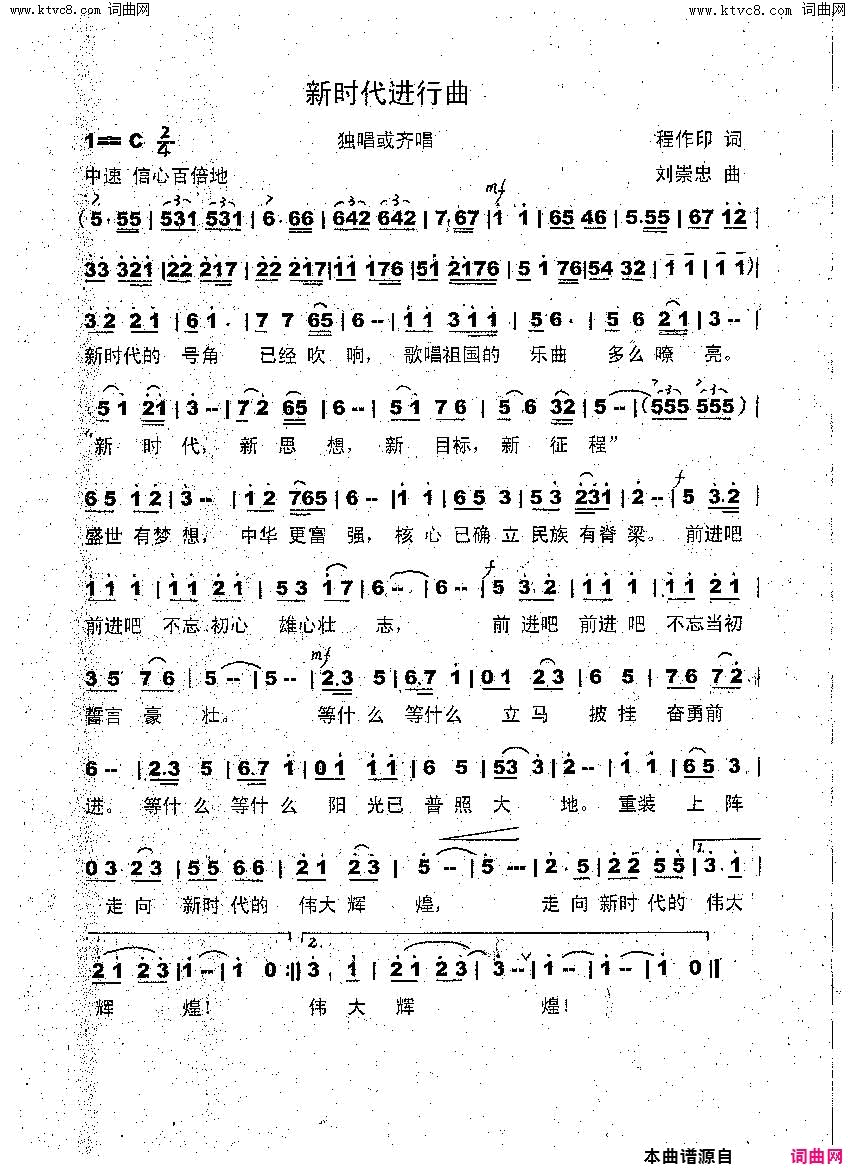 www.ktvc8.com 词曲网 www.ktvc8.com 词曲网
新时代进行曲
1== C 2/4 独唱或齐唱 程作印 词
中速 信心百倍地 刘崇忠 曲
mf
(5. 55 | 531 531 | 6. 66 | 642 642 | 7 67 | 1 1 | 65 46 | 5.55 | 67 12 |
33 321 | 22 217 | 22 217 | 11 176 | 51 2176 | 5 1 76 | 54 32 | 1 1 | 1 1) |
32 21 | 61. | 7 7 65 | 6-- | 11 311 | 56. | 5 6 21 | 3-- |
新时代的 号角 已经吹 响， 歌唱祖国的 乐曲 多么嘹 亮。
51 21 | 3-- | 72 65 | 6-- | 51 76 | 5 6 32 | 5-- | (555 555) |
“新 时 代， 新 思 想， 新 目标， 新 征 程”
65 12 | 3-- | 12 765 | 6-- | 1 1 | 65 3 | 53 231 | 2-- | 5 3.2 |
f
盛世 有梦 想， 中华 更富 强， 核 心 已确 立 民族 有脊 梁。 前进吧
11 1 | 11 21 | 53 17 | 6-- | 6-- | 5 3.2 | 11 1 | 11 21 |
f
前进吧 不忘 初心 雄心壮 志， 前 进吧 前进 吧 不忘当初
35 76 | 5-- | 5-- | 2.3 5 | 6.7 1 | 01 23 | 6 5 | 76 72 |
mf
誓言 豪 壮。 等什 么 等什 么 立 马 披 挂 奋勇前
6-- | 2.3 5 | 6.7 1 | 01 11 | 6 5 | 53 3 | 2-- | 1 1 | 65 3 |
进。 等什 么 等什 么 阳 光已 普 照 大 地。 重装 上 阵
03 23 | 55 66 | 21 23 | 5-- | 5-- | 2. 5 | 22 55 | 3. 1 |
1.
走向 新时 代的 伟大 辉 煌， 走向 新时 代的 伟大
21 23 | 1-- | 1 0 :|| 3. 1 | 21 23 | 3-- | 1-- | 1-- | 1 0 ||
2.
辉 煌！ 伟 大 辉 煌！
本曲谱源自 词曲网